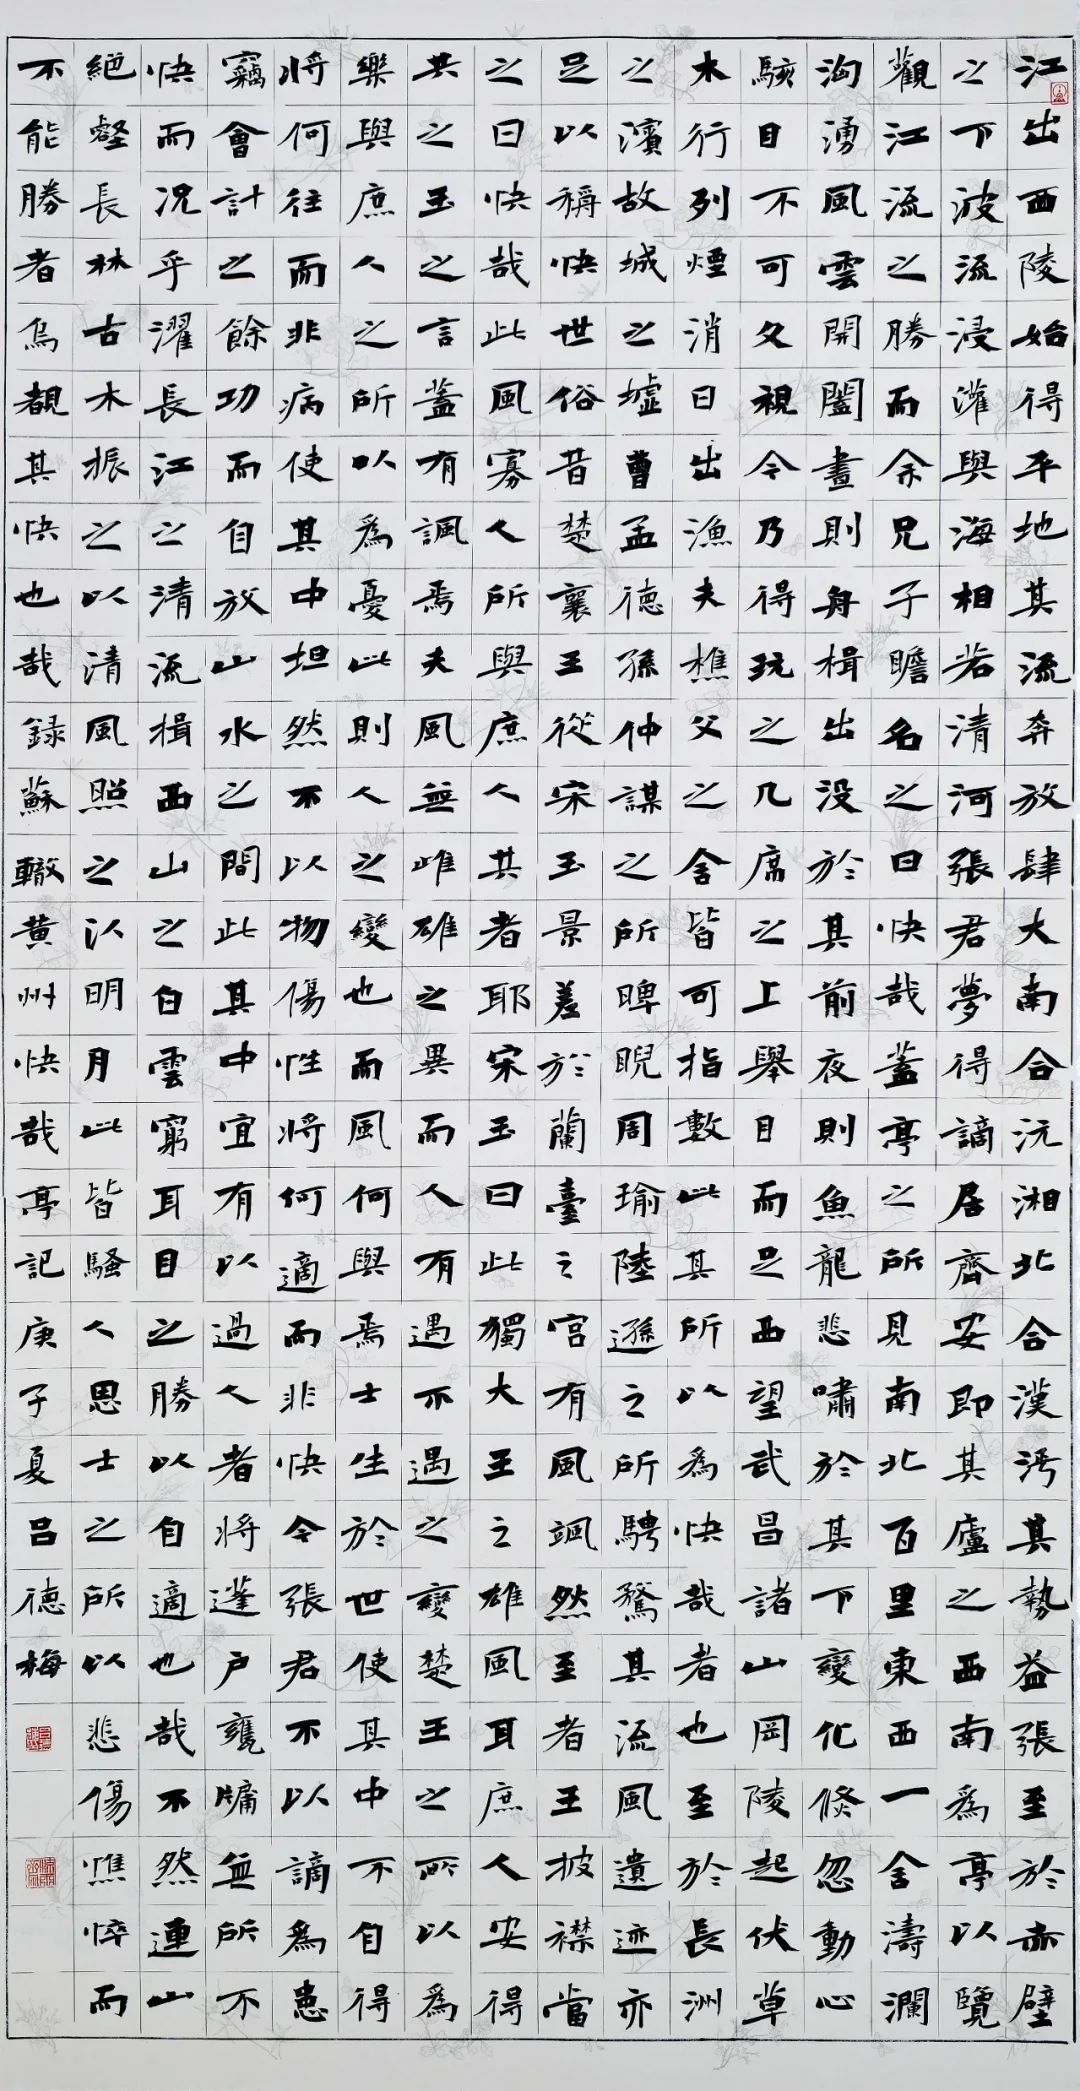 江出西陵始得平地其流奔放肆大南合沅湘北合漢沔其勢益張至於赤壁
之下波流浸灌與海相若清河張君夢得謫居齊安即其廬之西南為亭以覽
觀江流之勝而余兄子瞻名之曰快哉蓋亭之所見南北百里東西一舍濤瀾
洶湧風雲開闔晝則舟楫出没於其前夜則魚龍悲嘯於其下變化倏忽動心
駭目不可久視今乃得玩之几席之上舉目而足西望武昌諸山岡陵起伏草
木行列煙消日出漁夫樵父之舍皆可指數此其所以為快哉者也至於長洲
之濱故城之墟曹孟德孫仲謀之所睥睨周瑜陸遜之所騁騖其流風遺迹亦
足以稱快世俗昔楚襄王從宋玉景差於蘭臺之宮有風颯然至者王披襟當
之曰快哉此風寡人所與庶人共者耶宋玉曰此獨大王之雄風耳庶人安得
共之玉之言蓋有諷焉夫風無雌雄之異而人有遇不遇之變楚王之所以為
樂與庶人之所以為憂此則人之變也而風何與焉士生於世使其中不自得
將何往而非病使其中坦然不以物傷性將何適而非快今張君不以謫為患
竊會計之餘功而自放山水之間此其中宜有以過人者將蓬戶甕牖無所不
快而况乎濯長江之清流楫西山之白雲窮耳目之勝以自適也哉不然連山
絕壑長林古木振之以清風照之以明月此皆騷人思士之所以悲傷憔悴而
不能勝者烏覩其快也哉錄蘇轍黄州快哉亭記庚子夏呂德梅